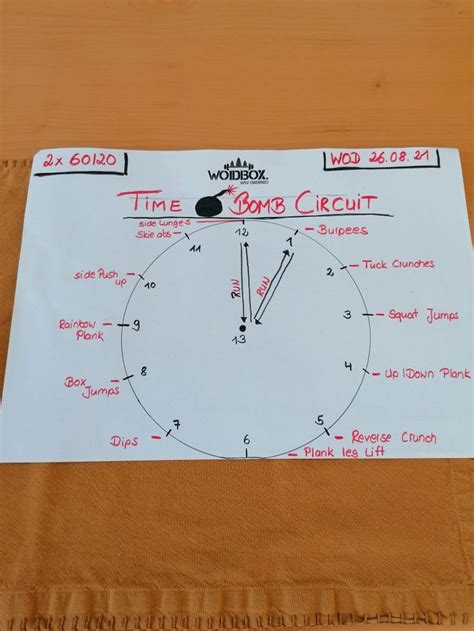 2x 60/20
WOIDBOX.
WOD 26.08.21
TIME BOMB CIRCUIT
side Lunges
12
Skie abs
11
1
Burpees
side Push
up
10
2
Tuck Crunches
RUN
RUN
Rainbow
Plank
9
3
Squat Jumps
13
Box
Jumps
8
4
Up/Down Plank
Dips
7
5
Reverse Crunch
6
Plank leg Lift